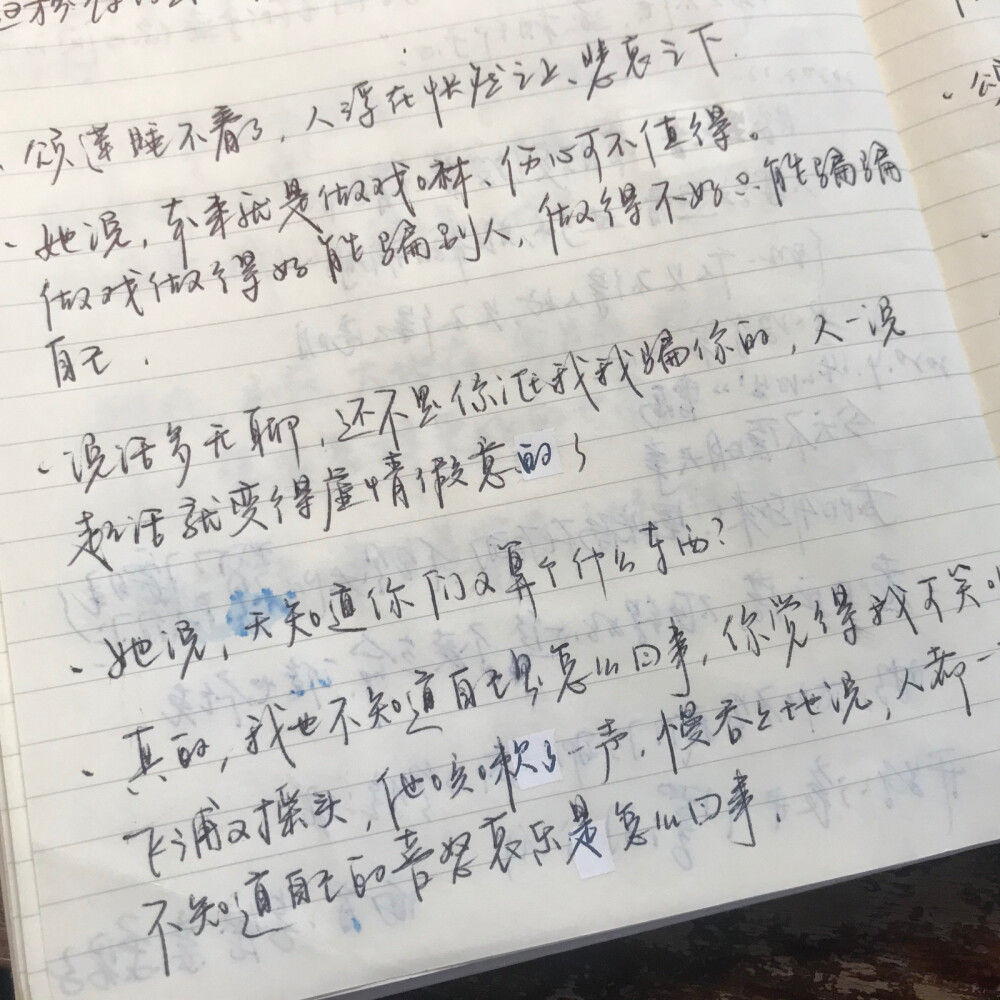 · 颂莲睡不着了，人浮在怅然之上、悲哀之下.
· 她说，本来就是做戏嘛、伤心可不值得。
做戏做得好能骗别人，做得不好只能骗骗
自己.
· 说话多无聊，还不是你诓我我骗你的，人一说
起话就变得虚情假意的了
· 她说，天知道你们又算个什么东西？
· 真的，我也不知道自己是怎么回事，你觉得我可笑
飞浦又摇头，他咳嗽了一声，慢吞吞地说，人都一
不知道自己的喜怒哀乐是怎么回事.
颂